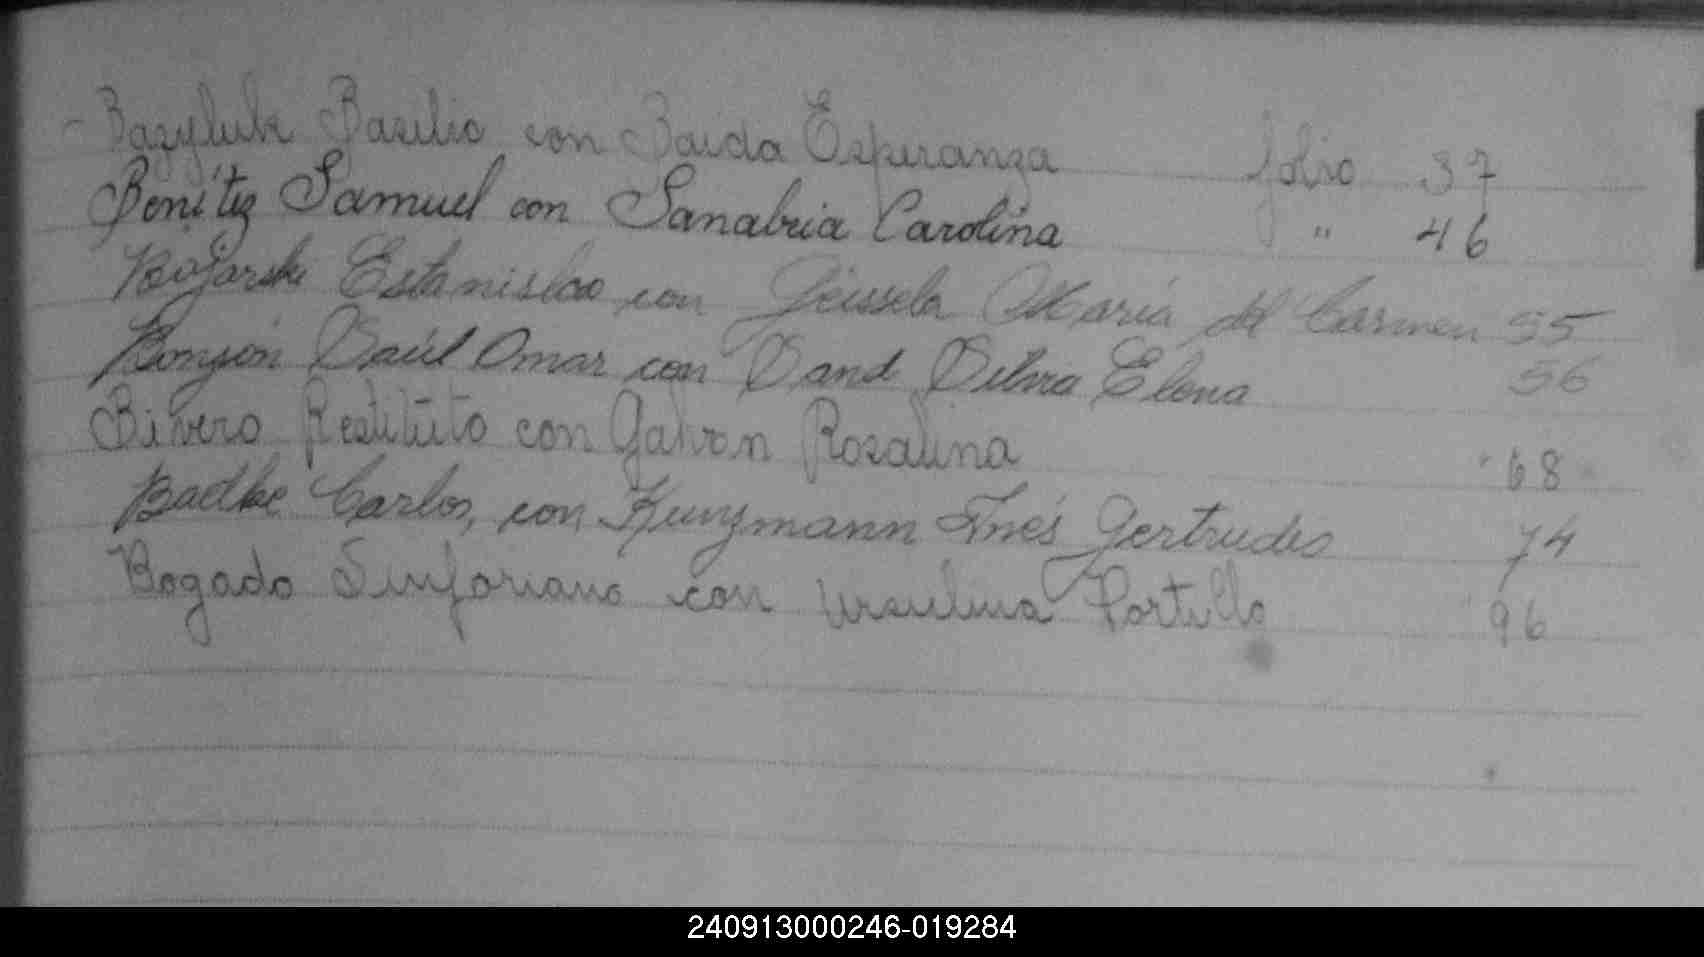 - Bazyluk Basilio con Baida Esperanza folio 37
Benitez Samuel con Sanabria Carolina " 46
Bojarski Estanislao con Geissela María del Carmen 55
Bonjón Saúl Omar con Sand Silvia Elena 56
Bivero Restituto con Galvan Rosalina 68
Badke Carlos, con Kunzmann Inés Gertrudis 74
Bogado Sinforiano con Ursulina Portillo 96
240913000246-019284